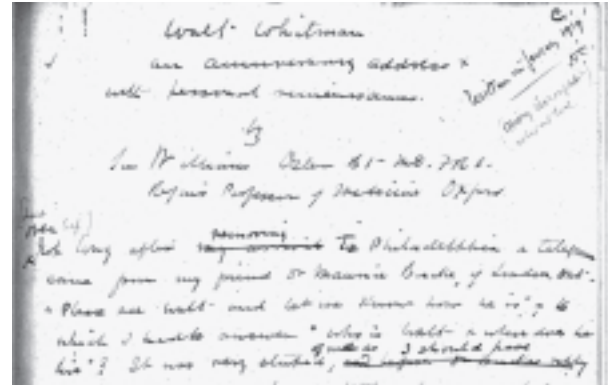 Walt Whitman
an anniversary address
with personal reminiscences.
by
Sir William Osler Bt- M.D. F.R.S.
Regius Professor of Medicine Oxford
Written in June 1919
Not long after my arrival removing to Philadelphia a telegram
came from my friend Dr Maurice Bucke, of London Ont.
"Please see Walt and let me know how he is", to
which I had to answer "Who is Walt & where does he
live"? It was very stupid, of me as I should have